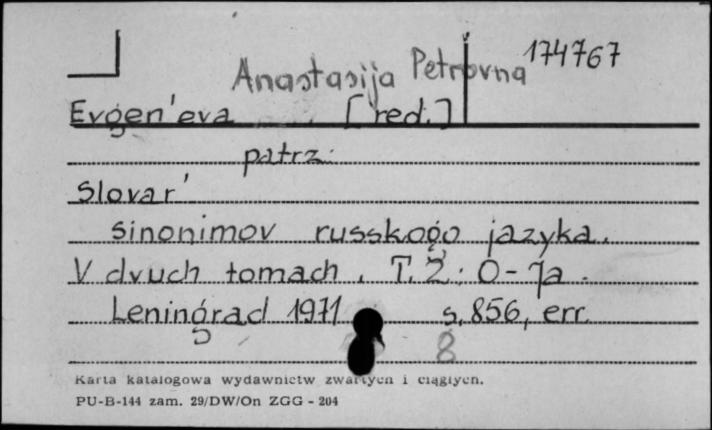 174767
Anastasija Petrovna
Evgen'eva [red.]
patrz:
Slovar'
sinonimov russkogo jazyka.
V dvuch tomach. T. 2: O-Ja.
Leningrad 1971 s. 856, err.
8
Karta katalogowa wydawnictw zwartych i ciągłych.
PU-B-144 zam. 29/DW/On ZGG - 204